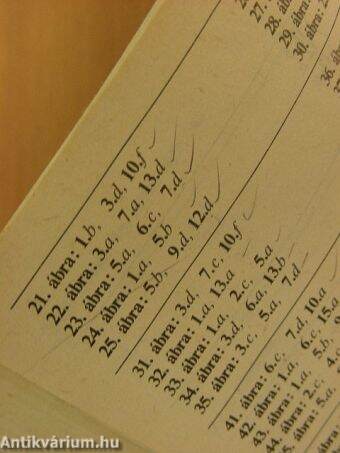 27.
28. áb
29. ábra:
30. ábra: 2
36. áb
21. ábra: 1.b, 3.d, 10.f
22. ábra: 3.a, 7.a, 13.d
23. ábra: 5.a, 6.c, 7.d
24. ábra: 1.a, 5.b
25. ábra: 5.b, 9.d, 12.d
31. ábra: 3.d, 7.c, 10.f
32. ábra: 1.a, 13.a
33. ábra: 1.a, 2.c, 5.a
34. ábra: 3.d, 6.a, 13.b
35. ábra: 3.c, 5.a, 7.d
41. ábra: 6.c, 7.d, 10.a
42. ábra: 1.a, 6.c, 15.a
43. ábra: 1.a, 5.b, 9
44. ábra: 2.c, 4.
ábra: 5.d
Antikvárium.hu